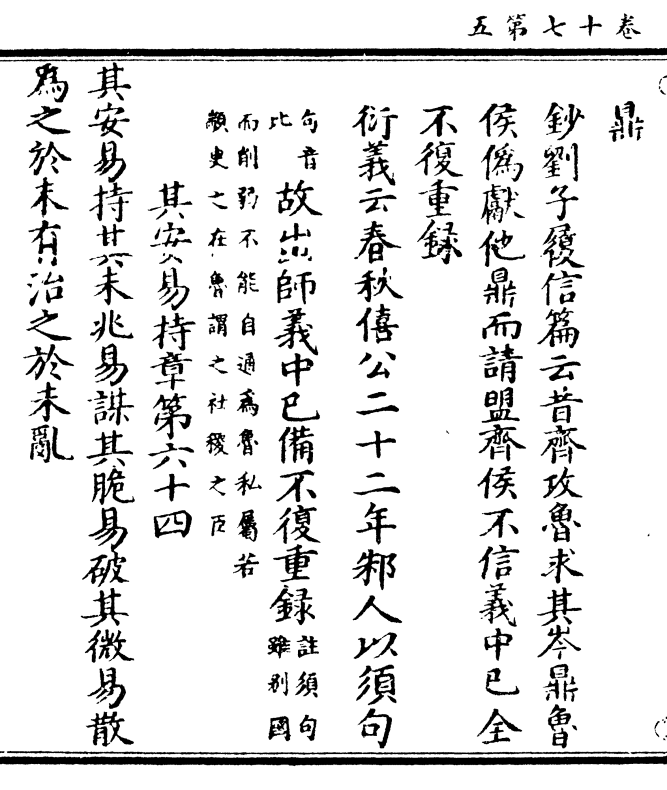 卷十七第五
鼎
鈔劉子履信篇云昔齊攻魯求其岑鼎魯
侯僞獻他鼎而請盟齊侯不信義中已全
不復重録
衍義云春秋僖公二十二年邾人以須句
句音比故出師義中已備不復重録註須句雖别國
而削弱不能自通爲魯私屬若
顓史之在魯謂之社稷之臣
其安易持章第六十四
其安易持其未兆易謀其脆易破其微易散
爲之於未有治之於未亂